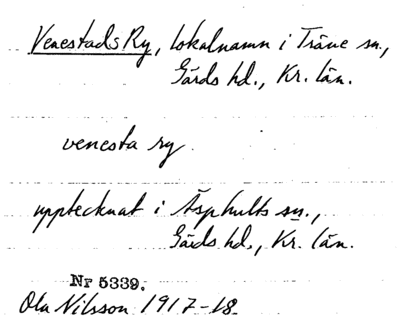 Venestads Ry, lokalnamn i Träne sn.,
Gärds hd., Kr. län.
venesta ry
upptecknat i Äsphults sn.,
Gärds hd., Kr. län.
Nr 5339.
Ola Nilsson 1917-18